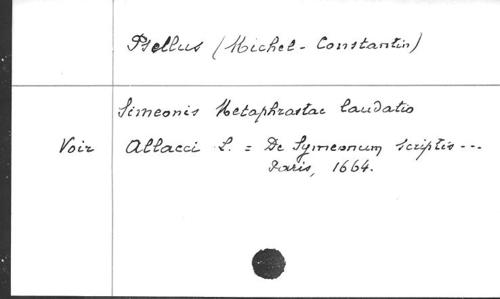 Psellus (Michel-Constantin)
Simeonis Metaphrastae laudatio
Voir Allacci L. = De Symeonum scriptis ---
Paris, 1664.